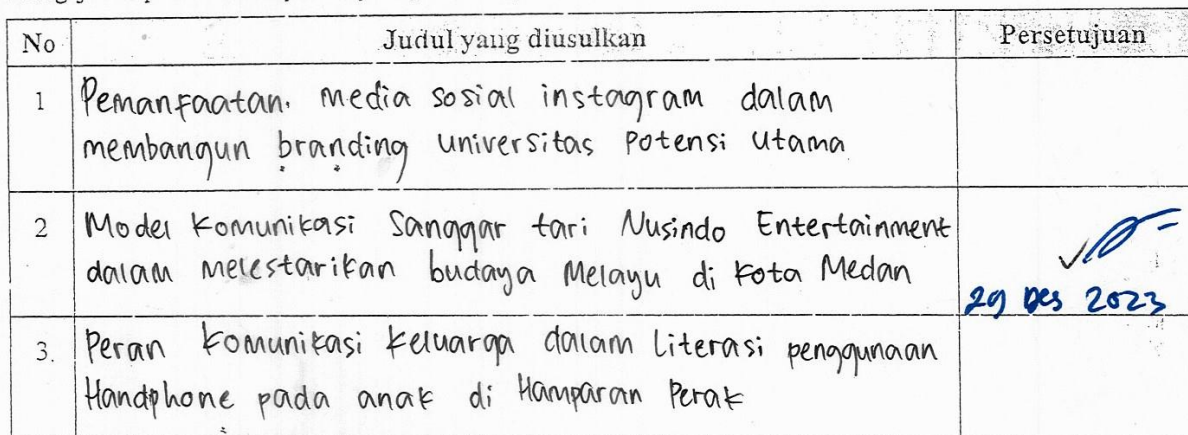 No Judul yang diusulkan Persetujuan
1 Pemanfaatan. media sosial instagram dalam
membangun branding universitas Potensi Utama
2 Model Komunikasi Sanggar tari Nusindo Entertainment
dalam melestarikan budaya Melayu di Kota Medan
29 Des 2023
3. Peran komunikasi keluarga dalam Literasi penggunaan
Handphone pada anak di Hamparan Perak